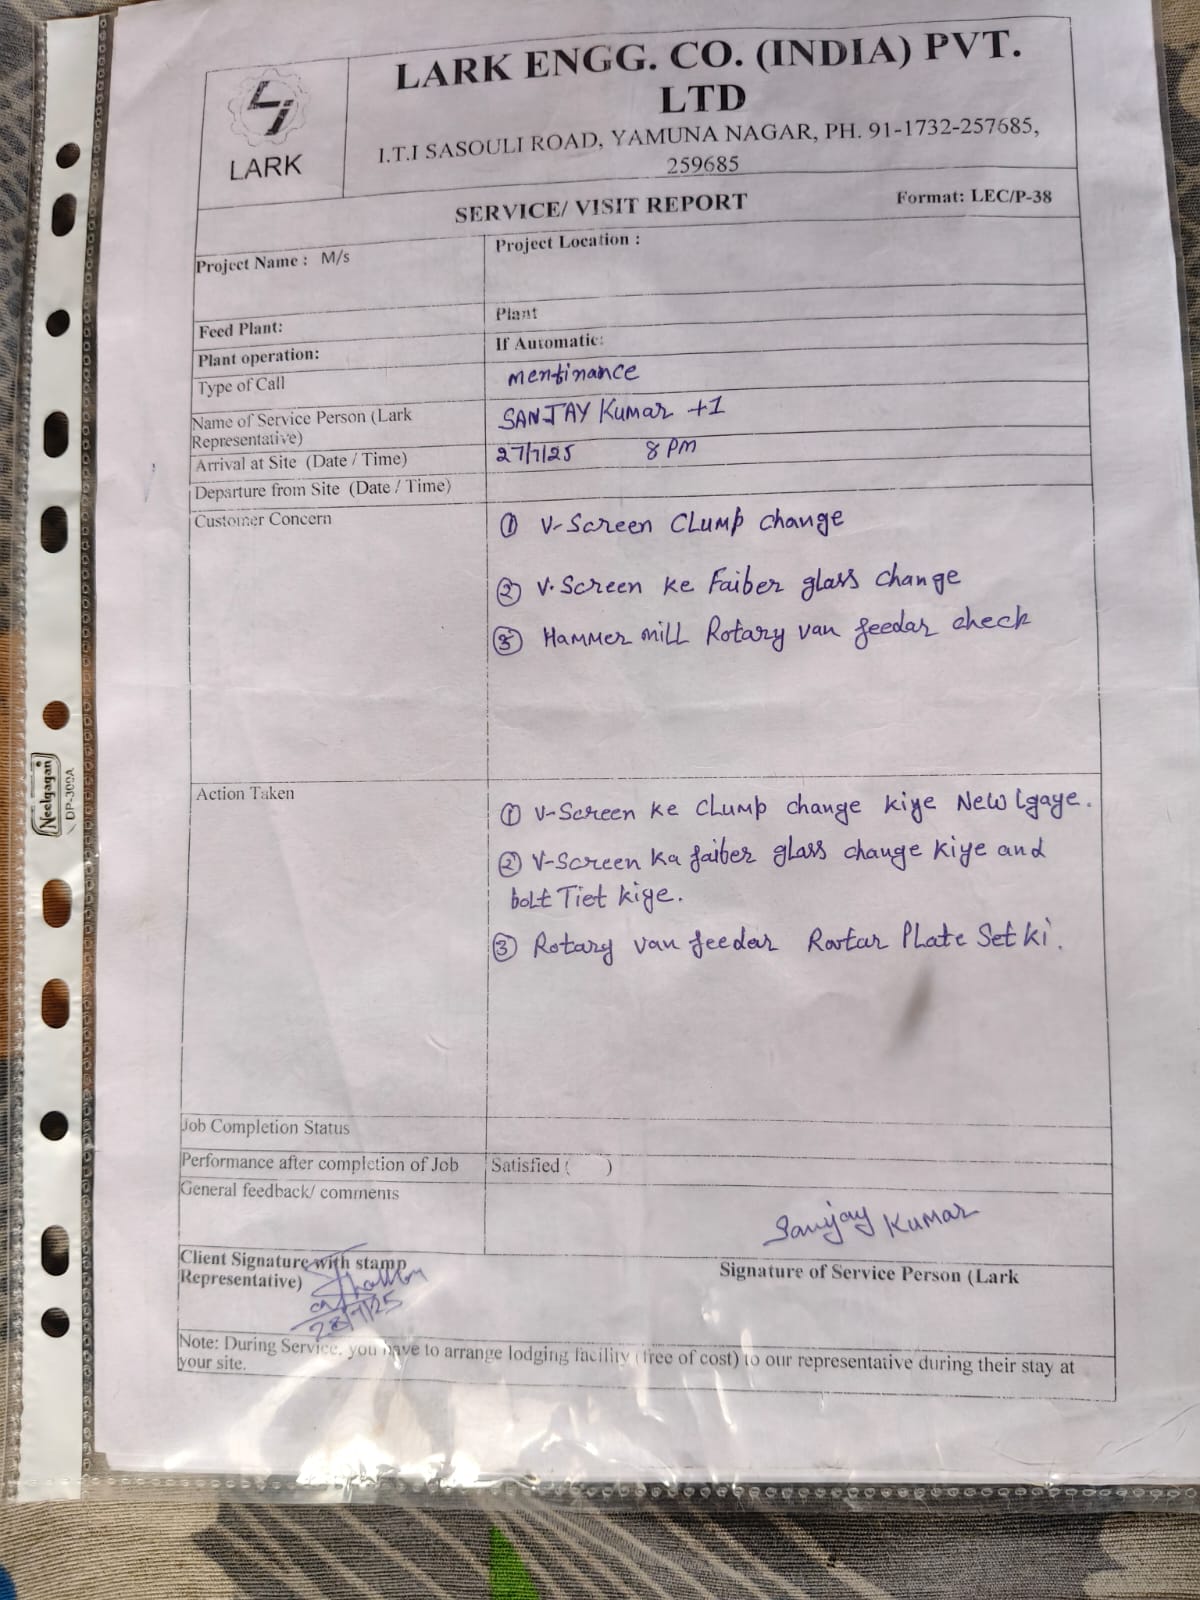 LARK ENGG. CO. (INDIA) PVT.
LTD
I.T.I SASOULI ROAD, YAMUNA NAGAR, PH. 91-1732-257685,
259685
LARK
SERVICE/ VISIT REPORT
Format: LEC/P-38
Project Name : M/s
Project Location :
Feed Plant:
Plant
Plant operation:
If Automatic:
Type of Call
mentinance
Name of Service Person (Lark
Representative)
SANJAY Kumar +1
Arrival at Site (Date / Time)
27/7/25 8 PM
Departure from Site (Date / Time)
Customer Concern
① V-Screen CLUMP change
② V.Screen ke Faiber glass change
③ Hammer mill Rotary van feedar check
Action Taken
① V-Screen ke CLUMP change kiye New lgaye.
② V-Screen ka faiber glass change kiye and
bolt Tiet kiye.
③ Rotary van feedar Rotar Plate Set ki.
Job Completion Status
Performance after completion of Job
Satisfied ( )
General feedback/ comments
Sanjay Kumar
Client Signature with stamp
Representative)
Signature of Service Person (Lark
28/7/25
Note: During Service, you have to arrange lodging facility (free of cost) to our representative during their stay at
your site.
Neelgagan
DP-309A